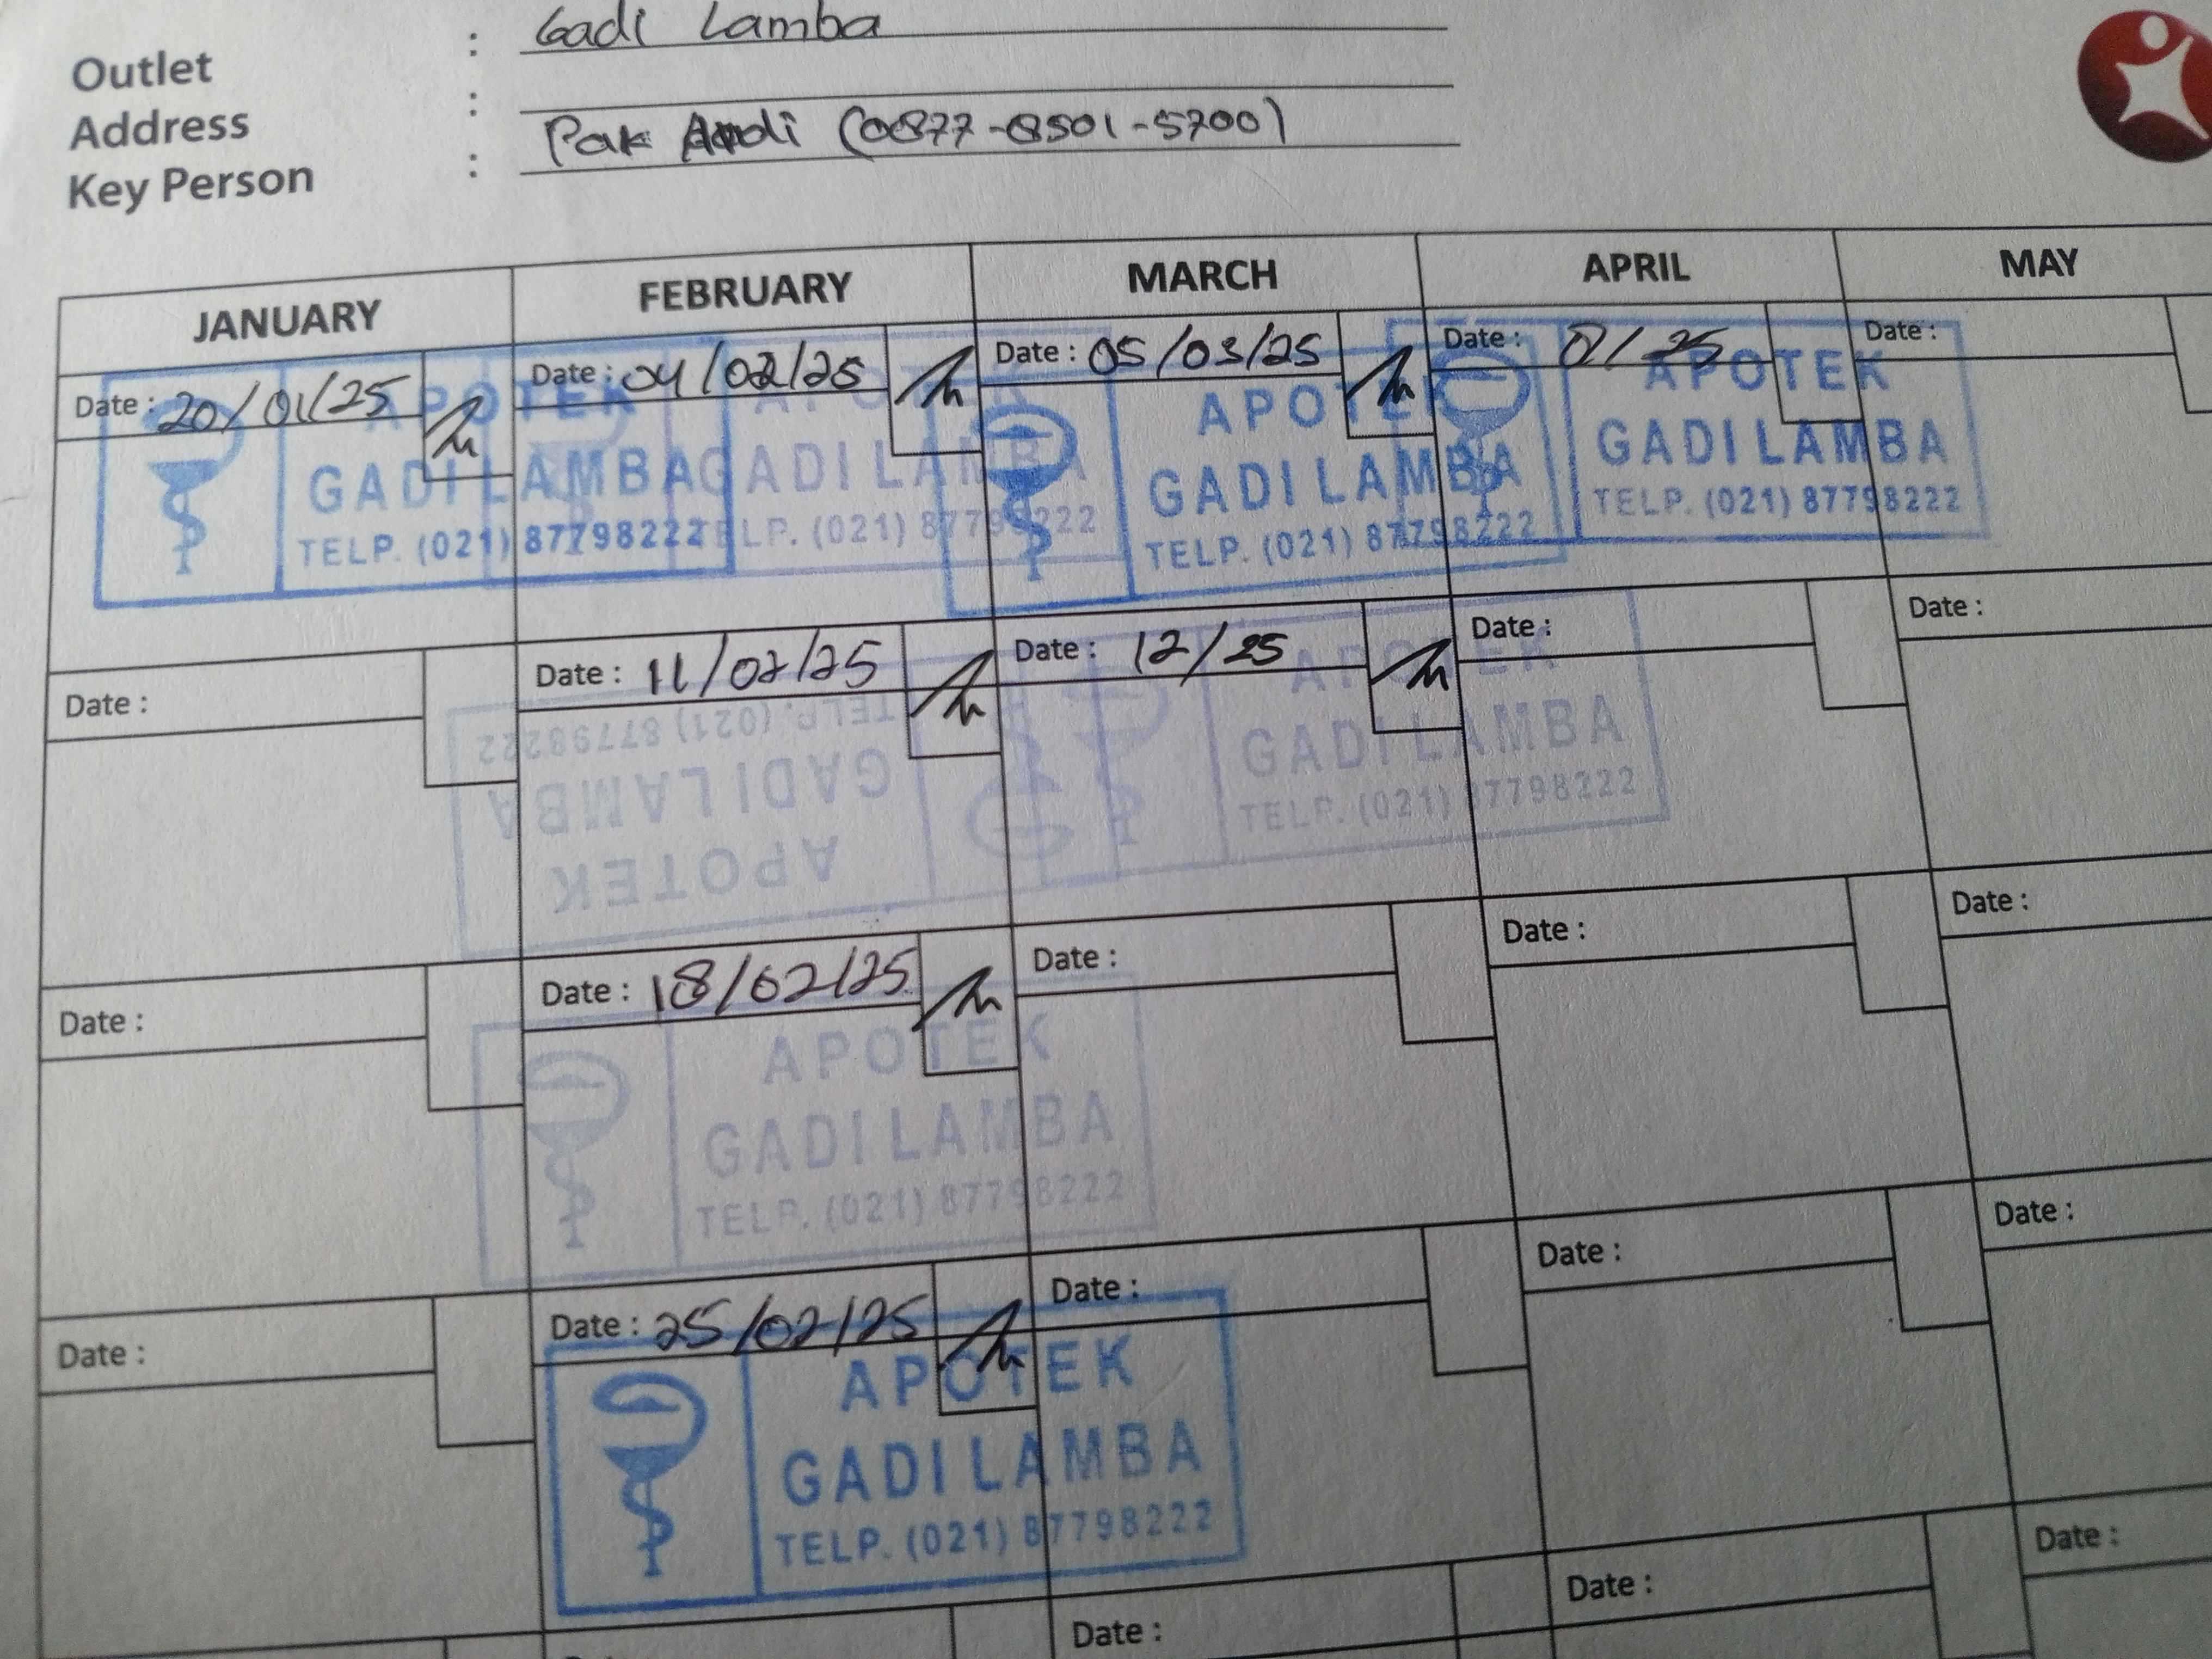 Outlet : Gadi Lamba
Address :
Key Person : Pak Andi (0877-8501-5700)
JANUARY FEBRUARY MARCH APRIL MAY
Date : 20/01/25 Date : 04/02/25 Date : 05/03/25 Date : /25 Date :
APOTEK APOTEK APOTEK APOTEK
GADI LAMBA GADI LAMBA GADI LAMBA GADI LAMBA
TELP. (021) 87798222 TELP. (021) 87798222 TELP. (021) 87798222 TELP. (021) 87798222
Date : Date : 11/02/25 Date : 12/25 Date : Date :
APOTEK APOTEK
GADI LAMBA GADI LAMBA
TELP. (021) 87798222 TELP. (021) 87798222
Date : Date : 18/02/25 Date : Date : Date :
APOTEK
GADI LAMBA
TELP. (021) 87798222
Date : Date : 25/02/25 Date : Date : Date :
APOTEK
GADI LAMBA
TELP. (021) 87798222
Date : Date : Date :